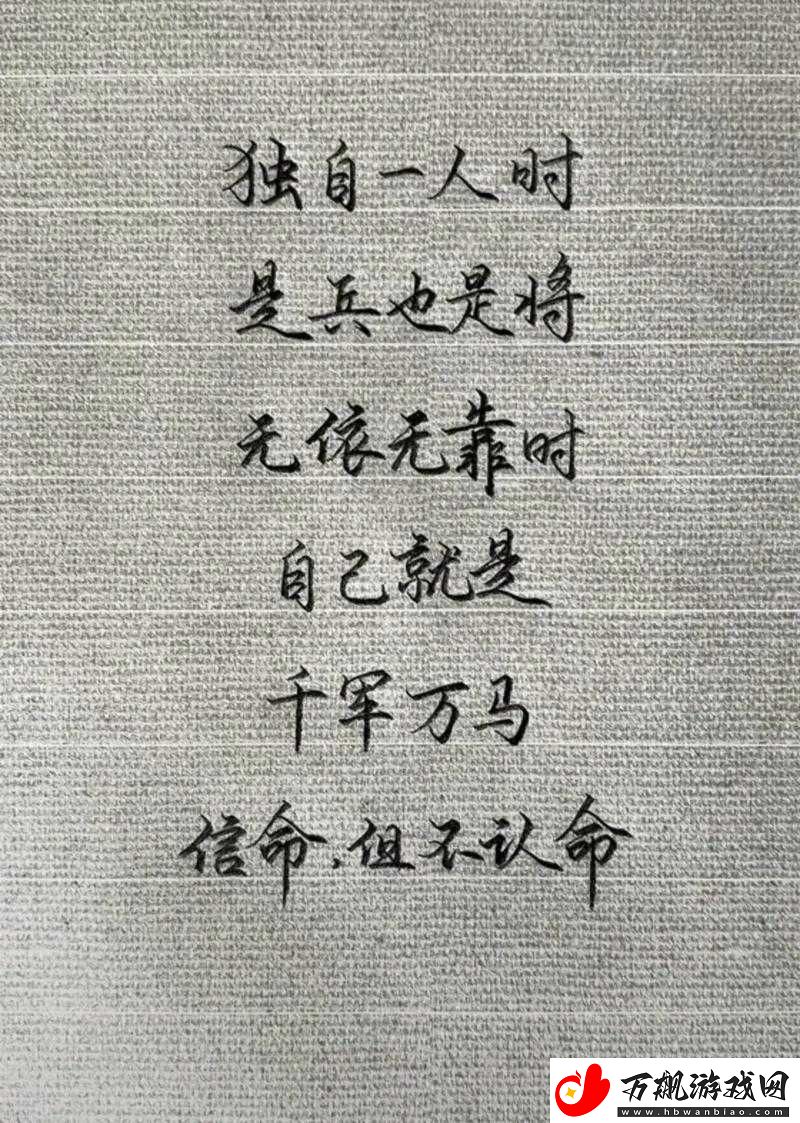 独自一人时
是兵也是将
无依无靠时
自己就是
千军万马
信命,但不认命
万飙游戏网
www.hbwanbiao.com